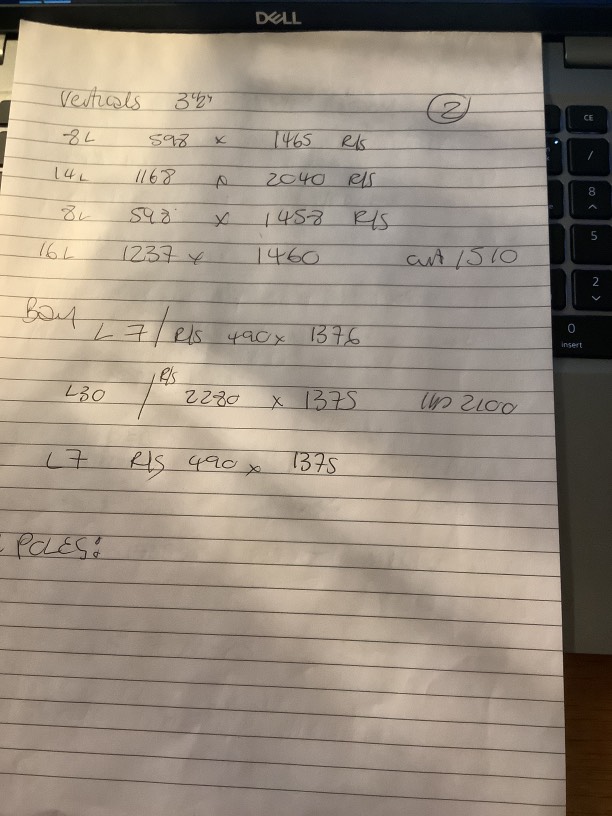 DELL
Verticals 3½"
②
8L 598 x 1465 R/S
14L 1168 x 2040 R/S
8L 598 x 1458 R/S
16L 1237 x 1460 cut 1510
Bay
L7 / R/S 490 x 1376
L30 / R/S 2280 x 1375 2100
L7 R/S 490 x 1375
POLES:
CE
/
8
5
2
0
insert